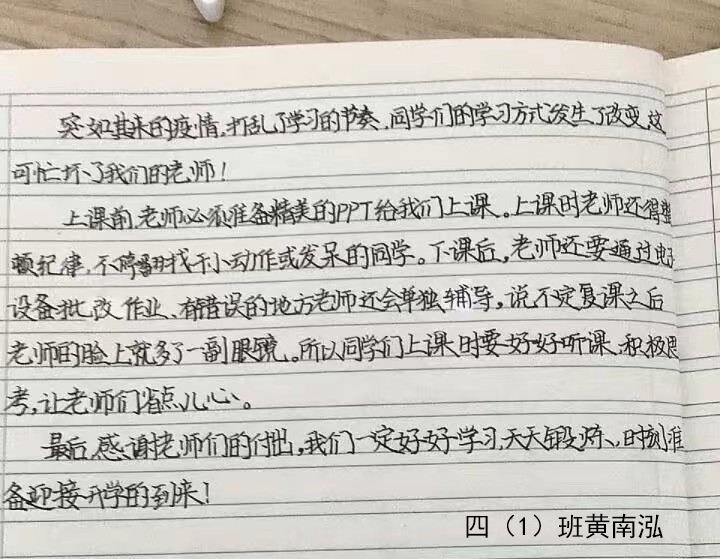 突如其来的疫情,打乱了学习的节奏,同学们的学习方式发生了改变,这
可忙坏了我们的老师!
上课前,老师必须准备精美的PPT给我们上课。上课时老师还得整
顿纪律,不停翻找干小动作或发呆的同学。下课后,老师还要通过电子
设备批改作业、有错误的地方老师还会单独辅导,说不定复课之后
老师的脸上就多了一副眼镜。所以同学们上课时要好好听课,积极思
考,让老师们省点儿心。
最后,感谢老师们的付出,我们一定好好学习,天天锻炼、时刻准
备迎接开学的到来!
四（1）班黄南泓